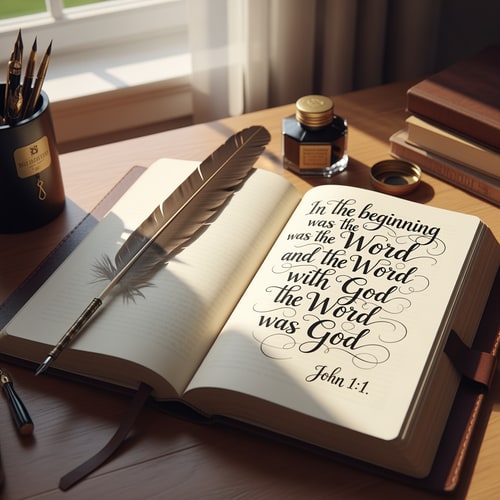 In the beginning
was the
was the Word
and the Word
with God
the Word
was God
John 1:1.